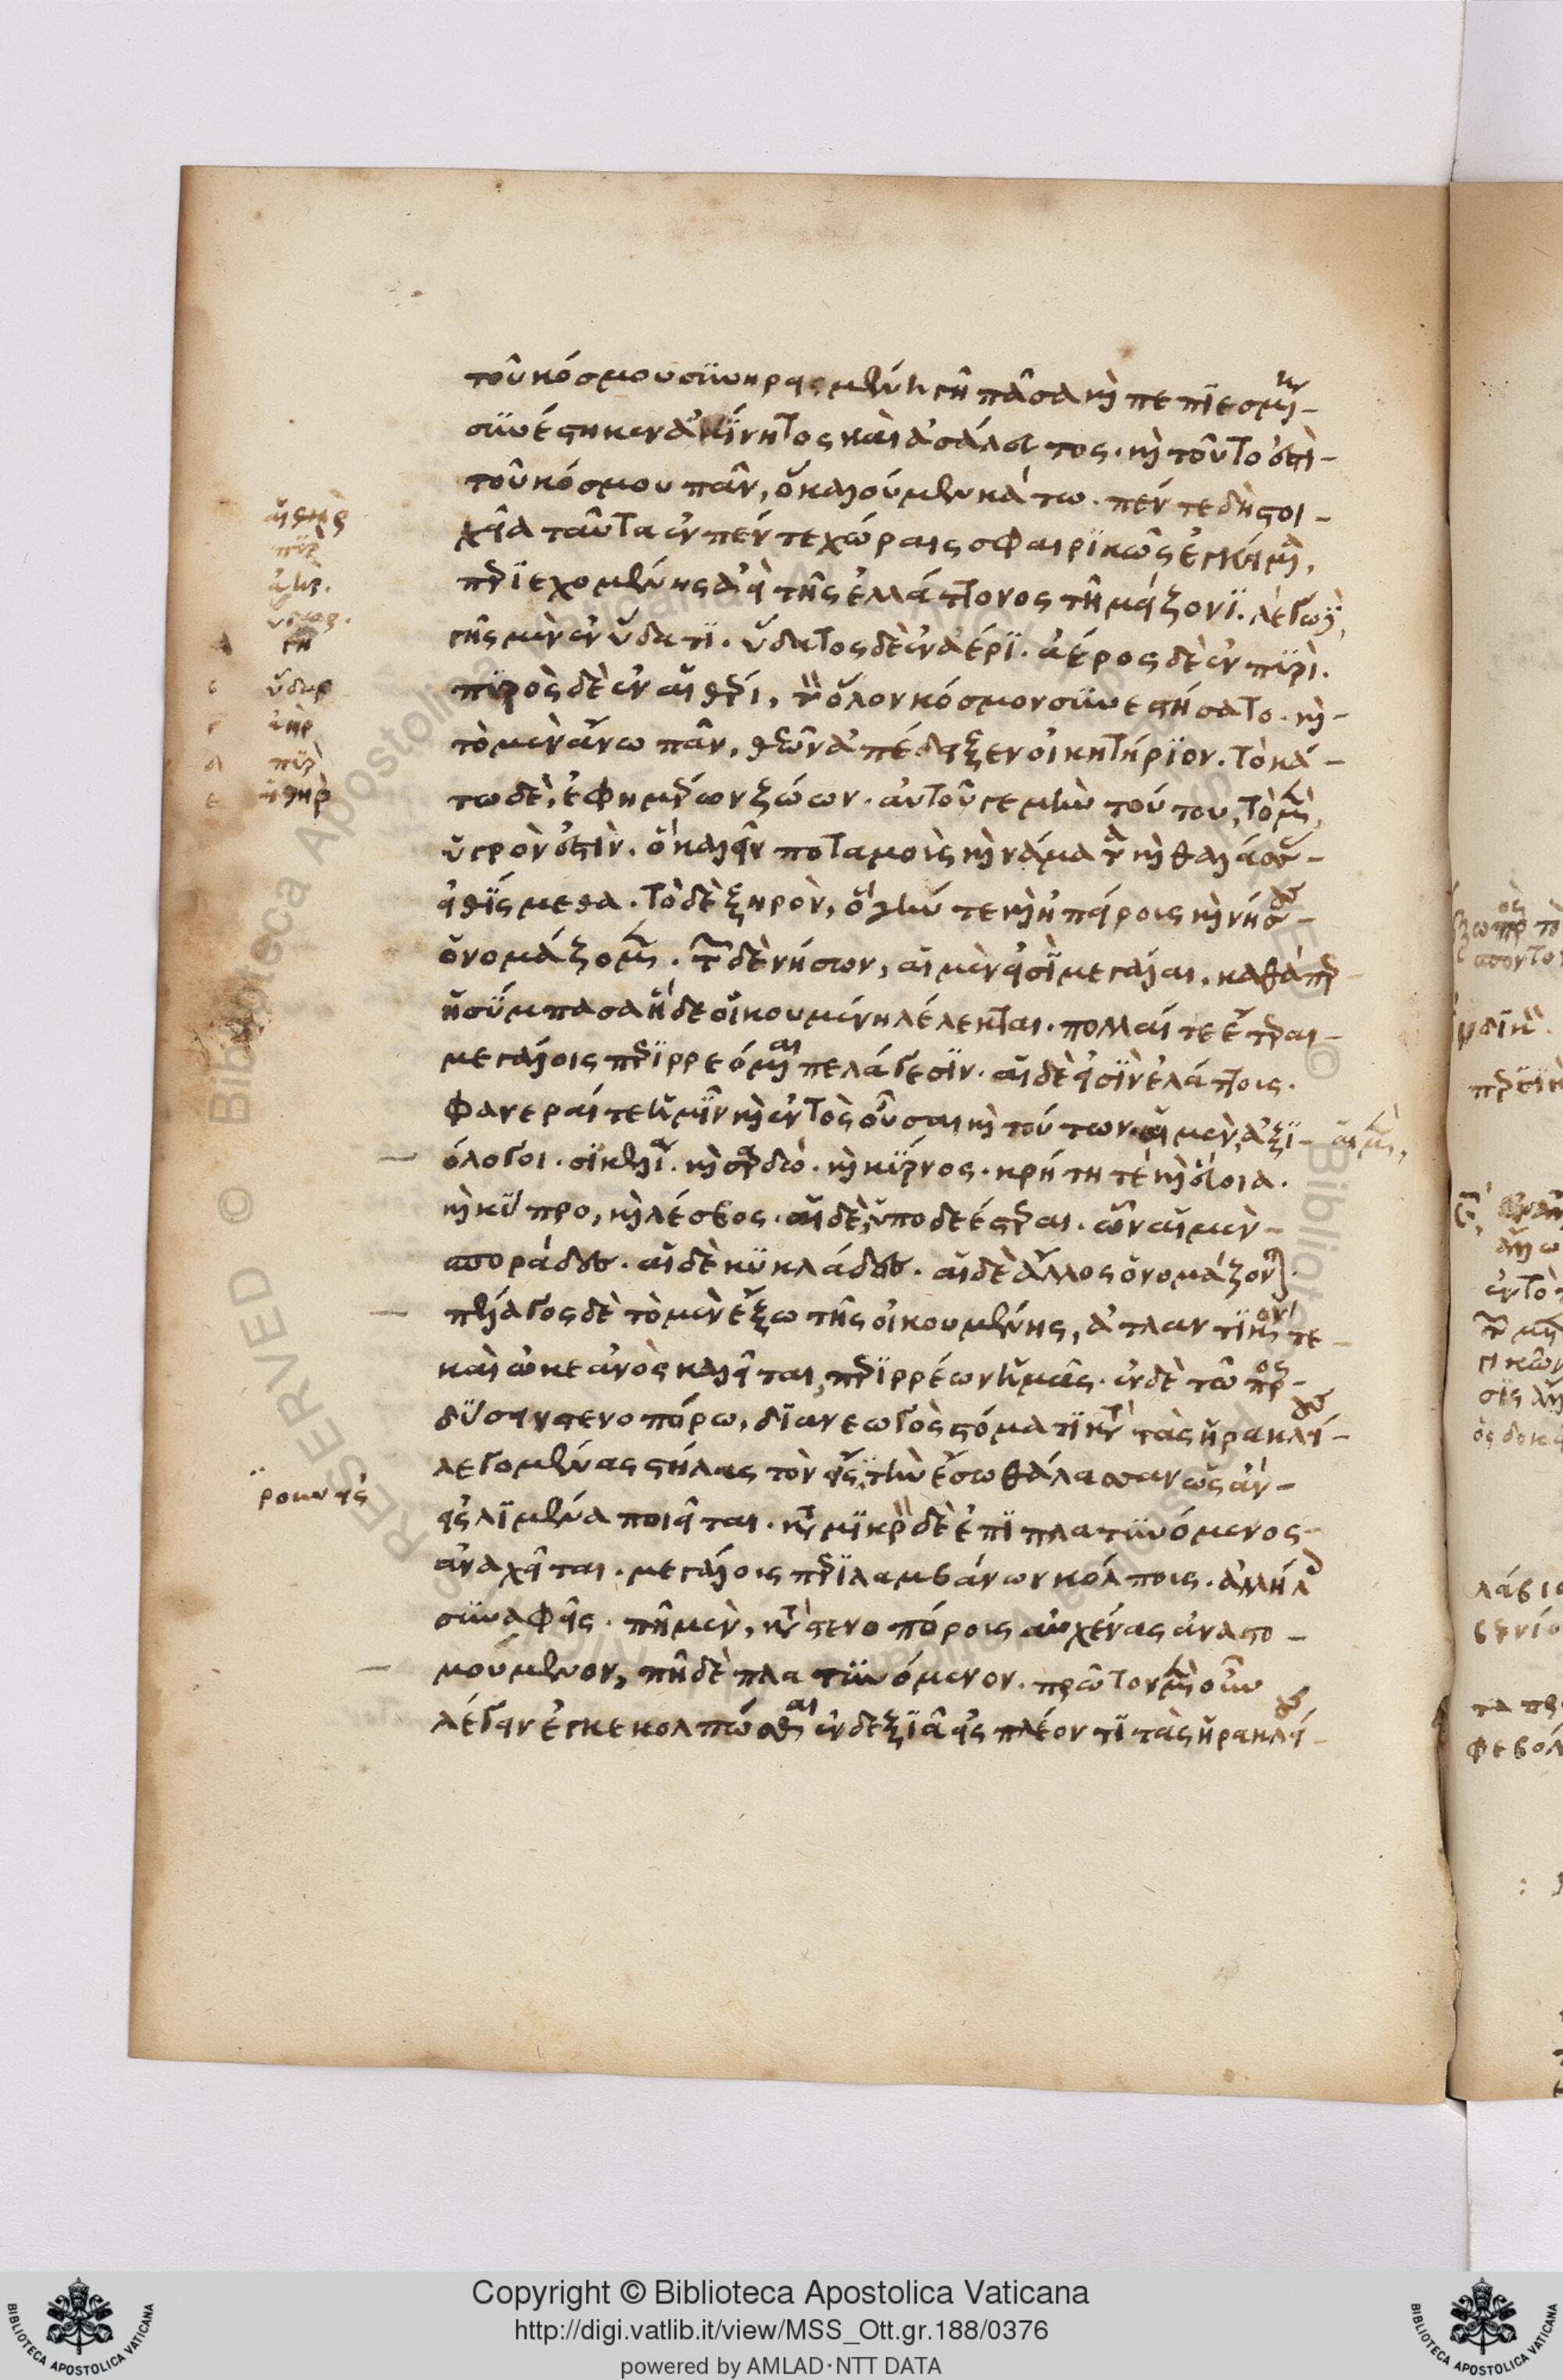 τοῦ κόσμου συνηρεισμένη γῆ πᾶσα καὶ πεπιεσμένη
συνέστηκεν ἀκίνητος καὶ ἀσάλευτος. καὶ τοῦτό ἐστι
τοῦ κόσμου πᾶν, ὃ καλοῦμεν κάτω. πέντε δὴ στοι-
χεῖα ταῦτα ἐν πέντε χώραις σφαιρικῶς ἐγκείμενα,
περιεχομένης ἀεὶ τῆς ἐλάττονος τῇ μείζονι. λέγω δὲ,
γῆς μὲν ἐν ὕδατι. ὕδατος δὲ ἐν ἀέρι. ἀέρος δὲ ἐν πυρί.
πυρὸς δὲ ἐν αἰθέρι, τὸν ὅλον κόσμον συνεστήσατο. καὶ
τὸ μὲν ἄνω πᾶν, θεῶν ἀπέδειξεν οἰκητήριον. τὸ κά-
τω δὲ, ἐφημέρων ζώων. αὐτοῦ γε μὴν τούτου, τὸ μὲν,
ὑγρόν ἐστιν. ὃ καλεῖν ποταμοὺς καὶ νάματα καὶ θαλάσσας
εἰθίσμεθα. τὸ δὲ ξηρὸν, ὃ γῆν τε καὶ ἠπείρους καὶ νήσους
ὀνομάζομεν. τῶν δὲ νήσων, αἱ μέν εἰσι μεγάλαι, καθάπερ
ἡ σύμπασα ἥδε οἰκουμένη λέλεκται. πολλαί τε ἕτεραι
μεγάλοις περιρρεόμεναι πελάγεσιν. αἱ δέ εἰσὶν ἐλάττους.
φανεραί τε ἡμῖν καὶ ἐντὸς οὖσαι καὶ τούτων αἱ μὲν, ἀξι- αἱ μὲν,
όλογοι. σικελία. καὶ σαρδώ. καὶ κύρνος. κρήτη τέ καὶ εὔβοια.
καὶ κύπρο, καὶ λέσβος. αἱ δὲ, ὑποδεέστεραι. ὧν αἱ μὲν
σποράδες. αἱ δὲ κυκλάδες. αἱ δὲ ἄλλως ὀνομάζονται.
πέλαγος δὲ τὸ μὲν ἔξω τῆς οἰκουμένης, ἀτλαντικόν τε
καὶ ὠκεανὸς καλεῖται, περιρρέων ἡμᾶς. ἐν δὲ τῷ πρὸς
δύσιν στενοπόρῳ, διανεωγὸς στόματι κατὰ τὰς ἡρακλείους
λεγομένας στήλας τὸν εἰς τὴν ἔσω θάλασσαν ὡς ἂν
εἰς λιμένα ποιεῖται. κατὰ μικρὸν δὲ ἐπιπλατυνόμενος
ἀναχεῖται. μεγάλους περιλαμβάνων κόλπους. ἀλλήλοις
συναφεῖς. πῆ μὲν, κατὰ στενοπόρους αὐχένας ἀναστο-
μούμενον, πῆ δὲ πλατυνόμενον. πρῶτον μὲν οὖν
λέγειν ἐγκεκολπῶσθαι ἐν δεξιᾷ εἰσπλέοντι τὰς ἡρακλείους
αἰθὴρ
πῦρ
ἀὴρ.
ὕδωρ.
γῆ
ὕδωρ
ἀὴρ
πῦρ
αἰθὴρ
ῥουν εἰς
Copyright © Biblioteca Apostolica Vaticana
http://digi.vatlib.it/view/MSS_Ott.gr.188/0376
powered by AMLAD·NTT DATA
BIBLIOTECA APOSTOLICA VATICANA
BIBLIOTECA APOSTOLICA VATICANA